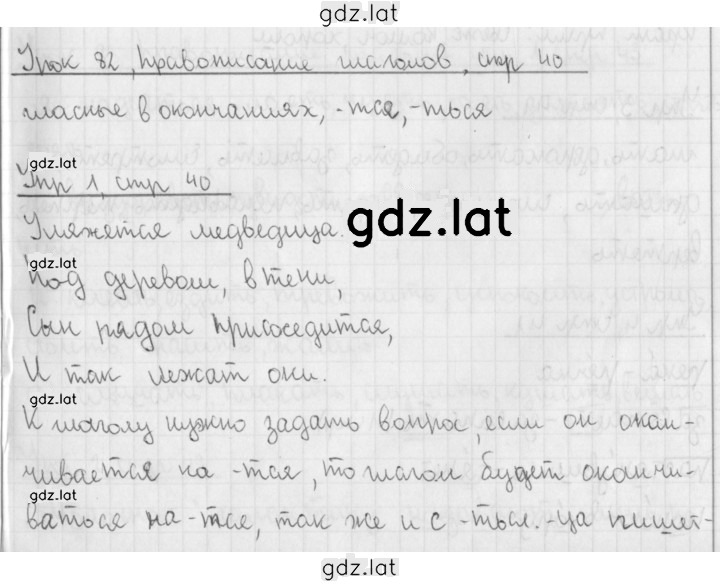 gdz.latУрок 82, правописание глаголов, стр 40
гласные в окончаниях, -тся, -ться
gdz.lat
Упр 1, стр 40
Уляжется медведица
gdz.lat
gdz.lat
Под деревом, в тени,
Сын рядом присоседится,
И так лежат они.
gdz.lat
К глаголу нужно задать вопрос, если он окан-
чивается на -тся, то глагол будет окончи-
gdz.lat
ваться на -тся, так же и с -ться. -ца пишет-
gdz.lat